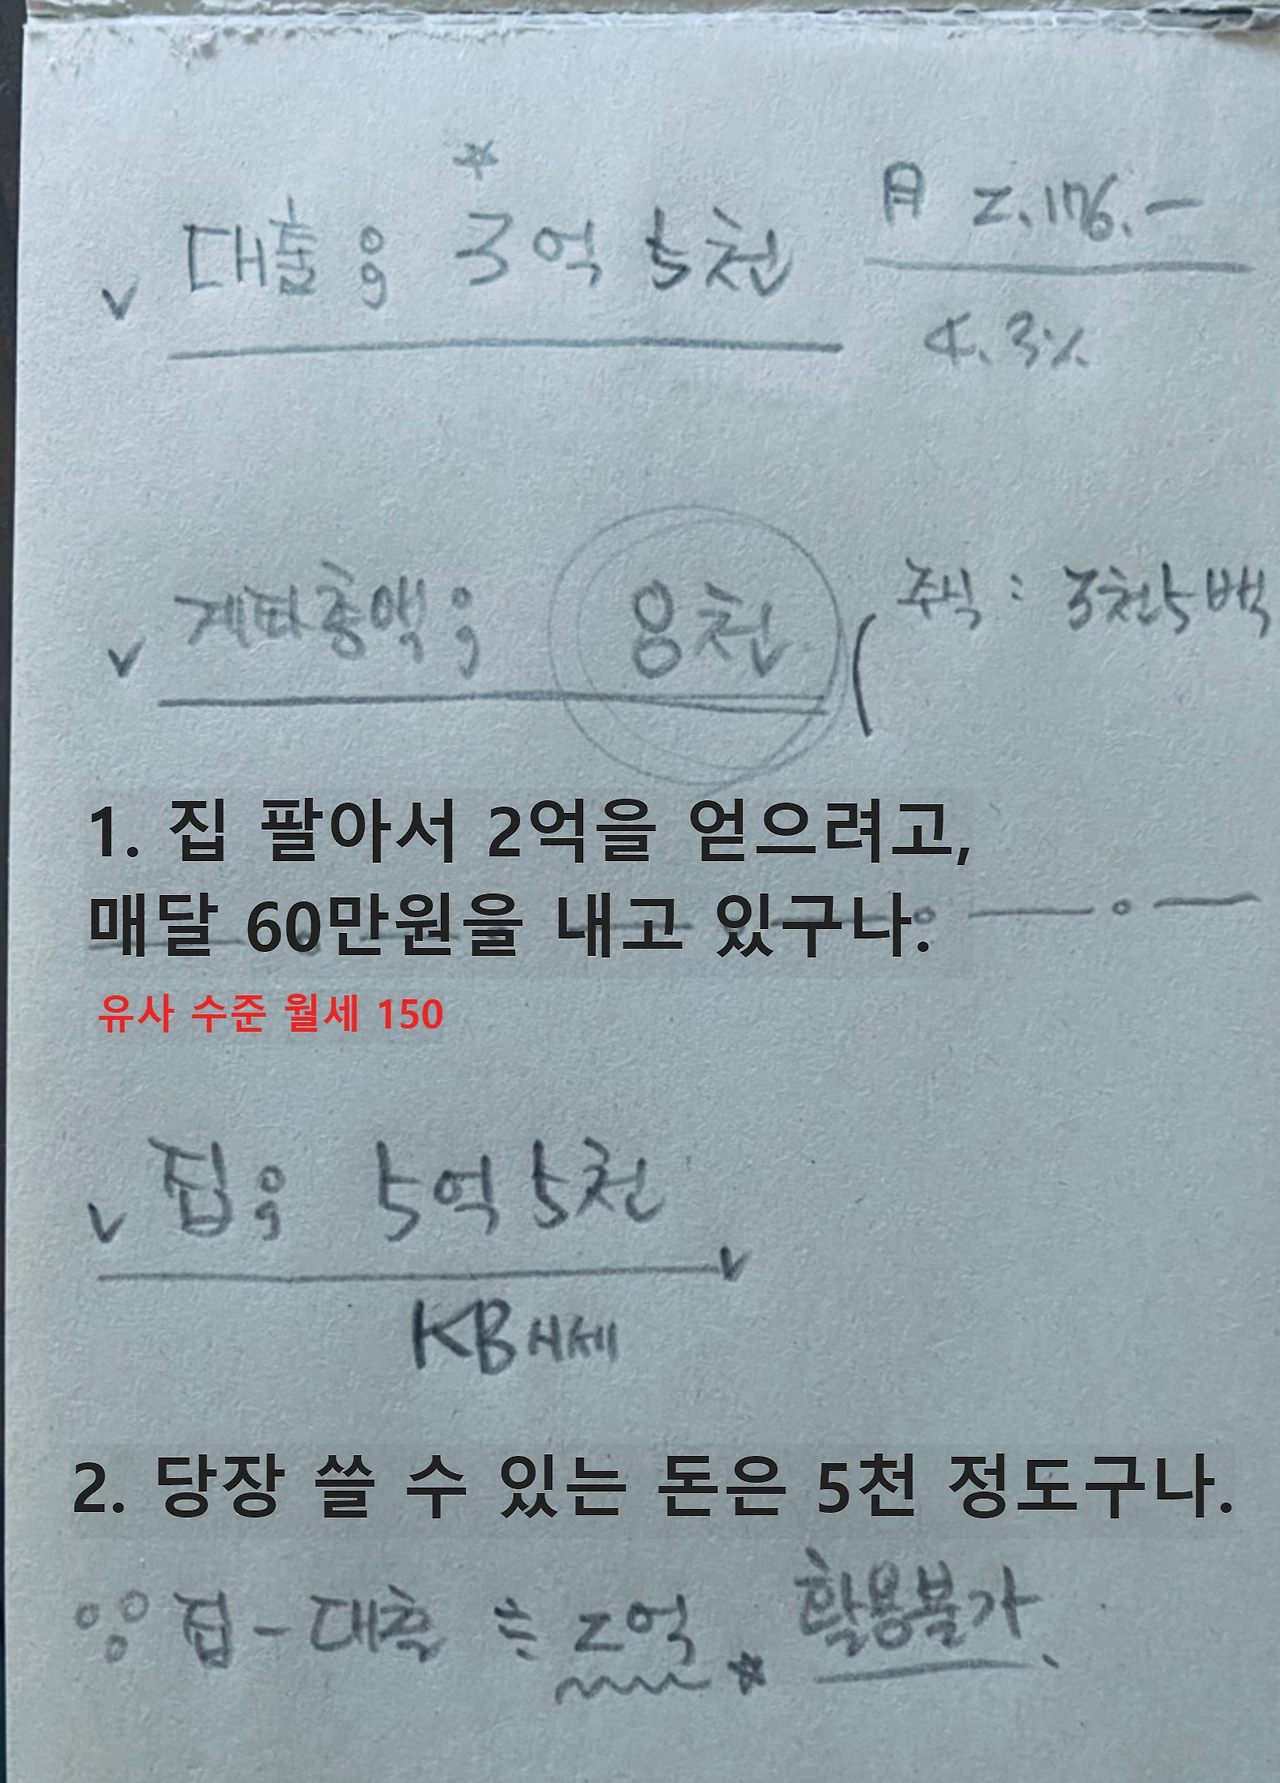 ☆
✓ 대출 : 3억 5천 月 2.176.-
4.3%
✓ 계좌총액 : 8천 ( 주식 : 3천5백
1. 집 팔아서 2억을 얻으려고,
매달 60만원을 내고 있구나.
유사 수준 월세 150
✓ 집 : 5억 5천 ✓
KB시세
2. 당장 쓸 수 있는 돈은 5천 정도구나.
∴ 집 - 대출 ≒ 2억 ☆ 활용불가.